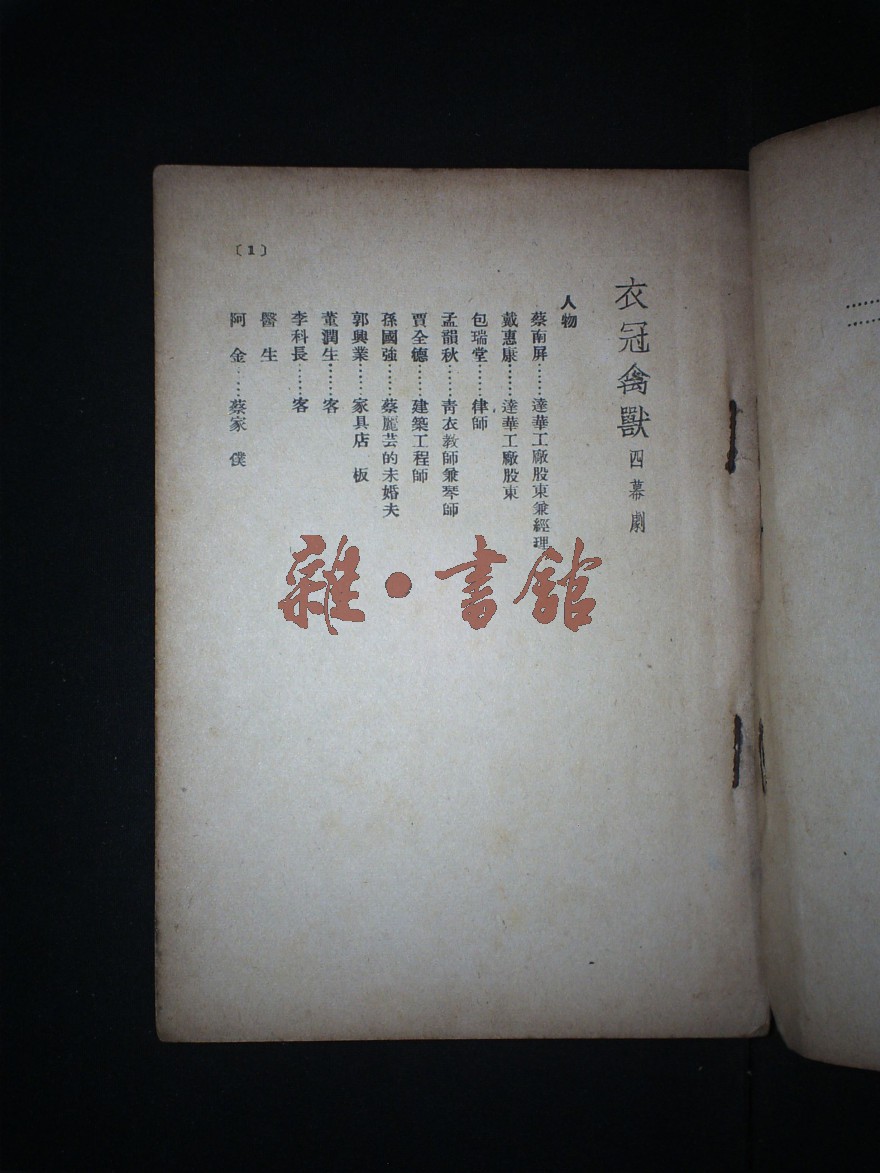 衣冠禽獸 四幕劇
人物
蔡南屏……達華工廠股東兼經理
戴惠康……達華工廠股東
包瑞堂……律師
孟韻秋……青衣教師兼琴師
賈全德……建築工程師
孫國強……蔡麗芸的未婚夫
郭興業……家具店 板
董潤生……客
李科長……客
醫生
阿金……蔡家 僕
〔1〕
雜·書館